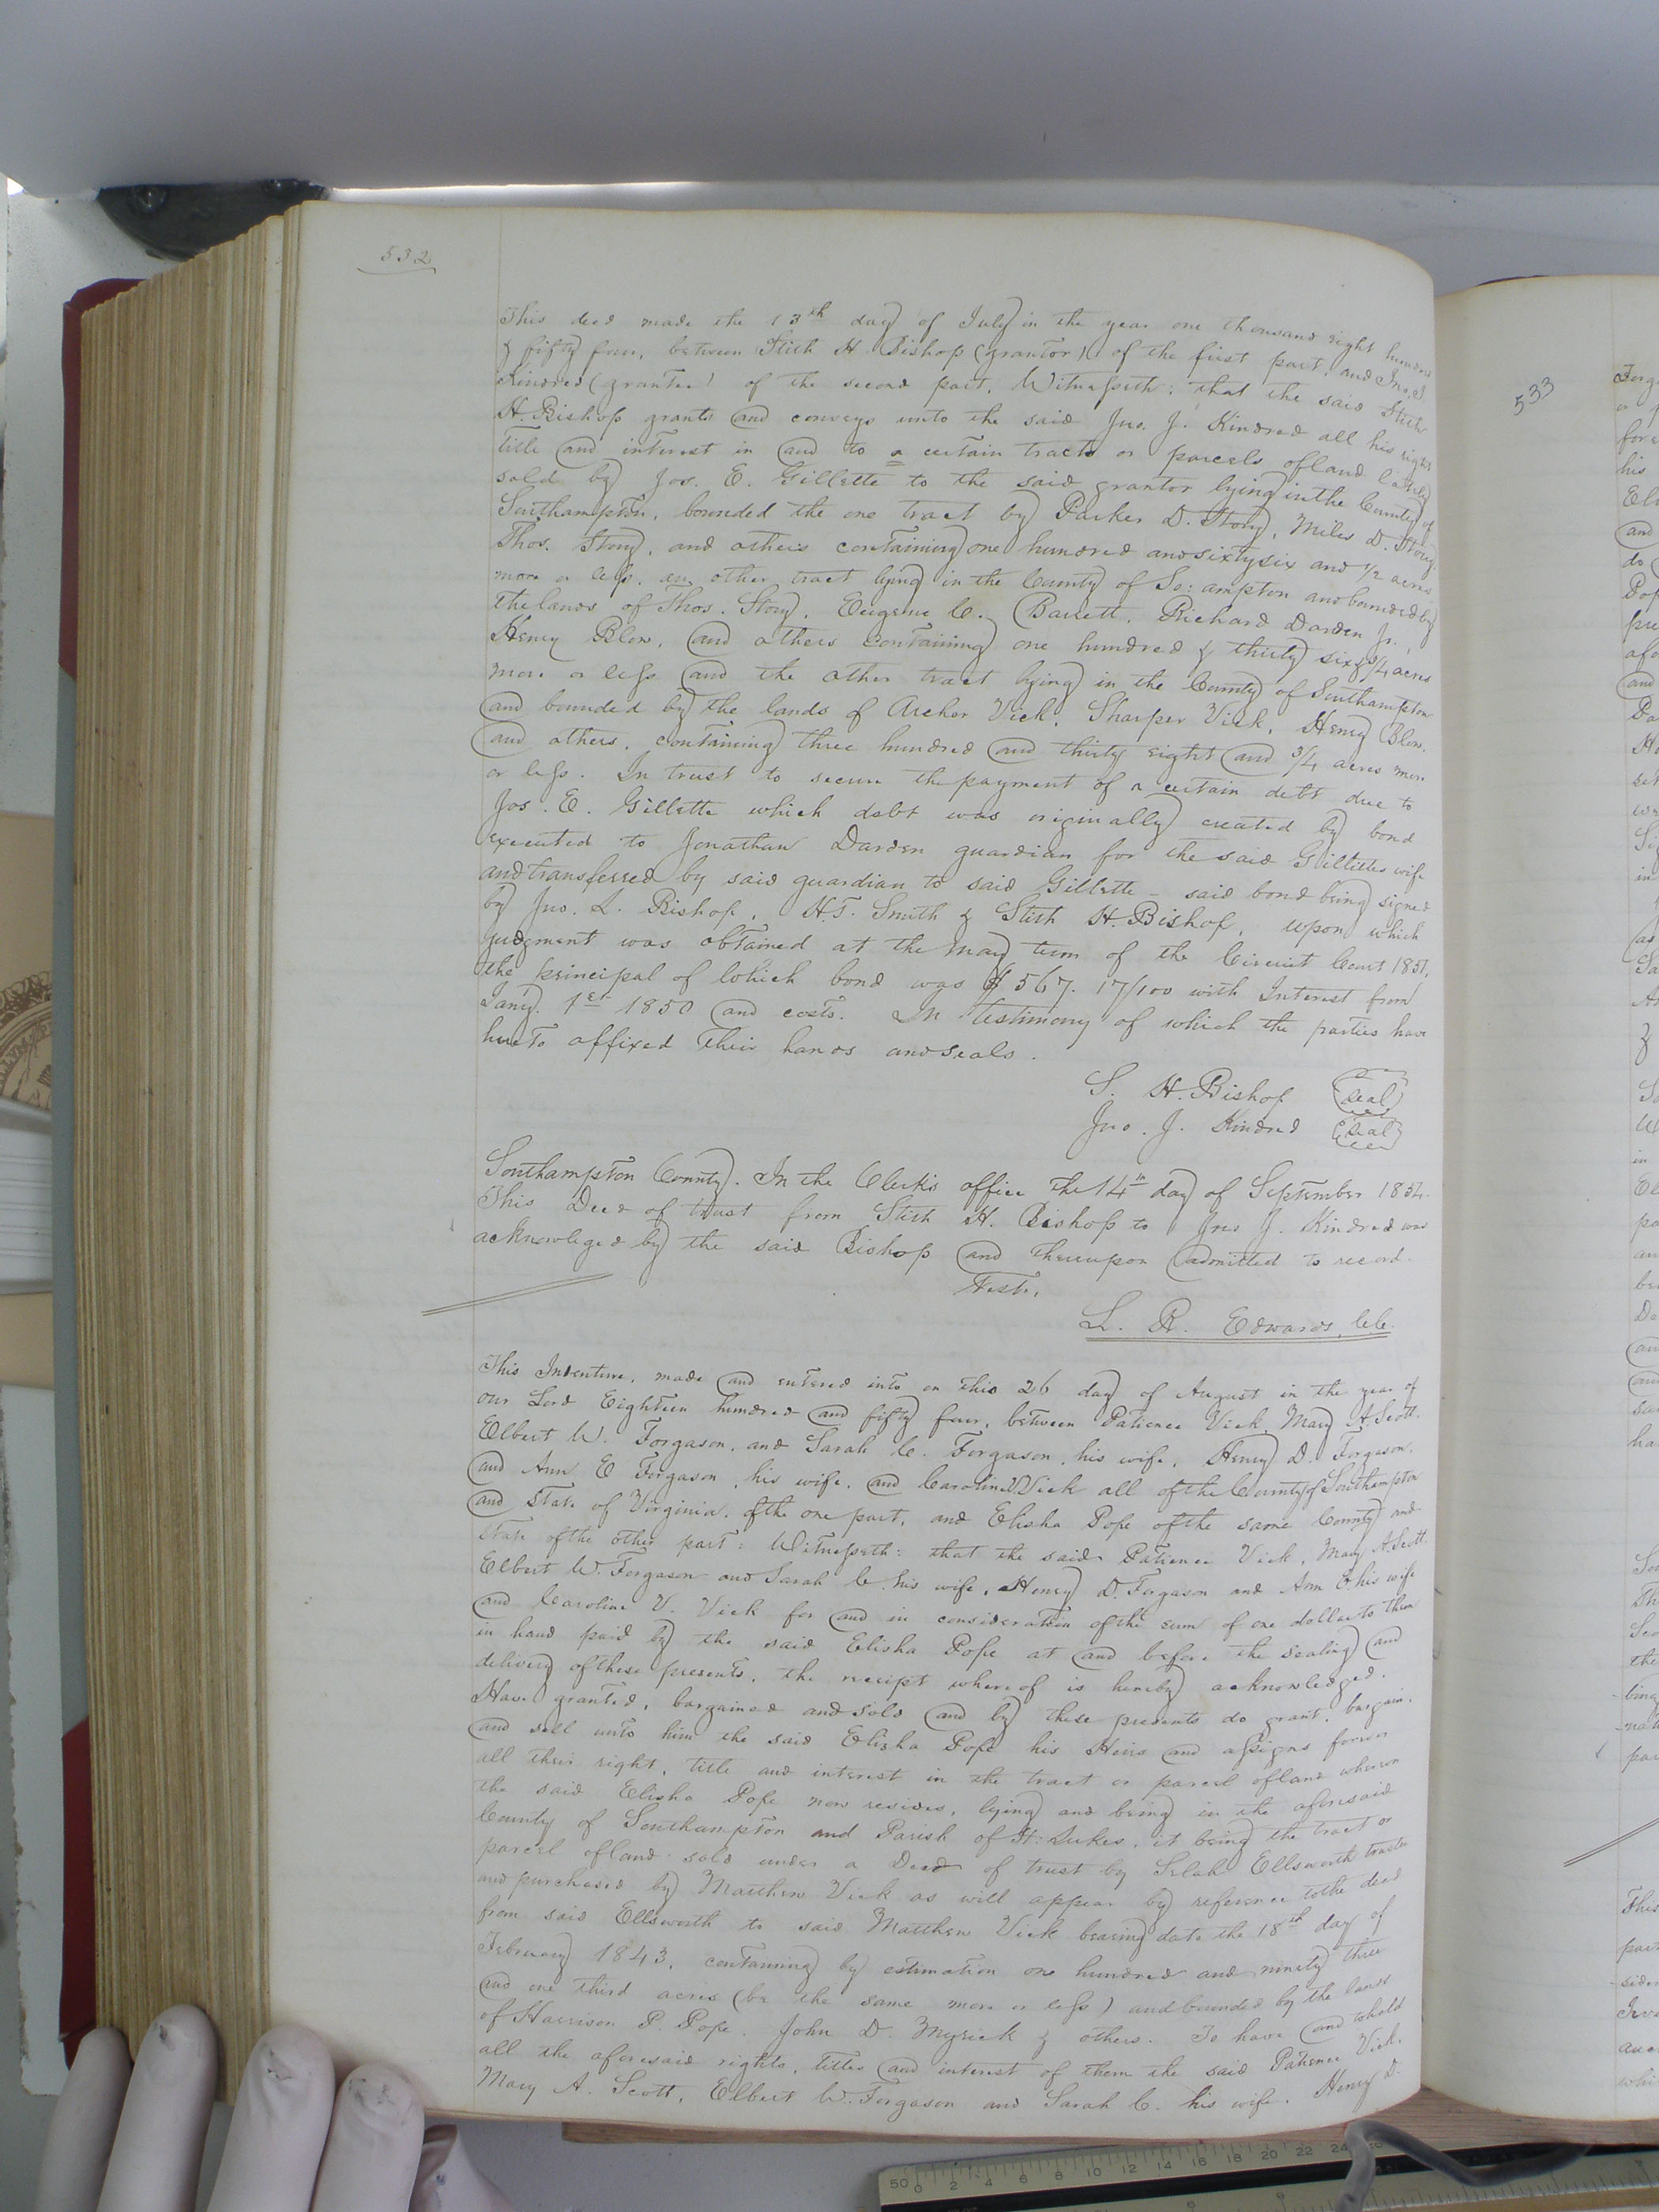 532
This deed made the 13th day of July in the year one thousand eight hundred
& fifty four, between Stith H. Bishop (grantor) of the first part, and Jno. J.
Kindred (grantee) of the second part, Witnesseth: that the said Stith
H. Bishop grants and conveys unto the said Jno. J. Kindred all his right
title and interest in and to a certain tracts or parcels of land lately
sold by Jos. E. Gillette to the said grantor lying in the County of
Southampton, bounded the one tract by Parker D. Story, Miles D. Story,
Thos. Story, and others containing one hundred and sixty six and 1/2 acres
more or less, an other tract lying in the County of So:ampton and bounded by
the lands of Thos. Story, Eugene C. Barrett, Richard Darden Jr.,
Henry Blow, and others containing one hundred & thirty six & 3/4 acres
more or less and the other tract lying in the County of Southampton
and bounded by the lands of Archer Vick, Sharper Vick, Henry Blow,
and others, containing three hundred and thirty eight and 3/4 acres more
or less. In trust to secure the payment of a certain debt due to
Jos. E. Gillette which debt was originally created by bond
executed to Jonathan Darden guardian for the said Gillettes wife
and transferred by said guardian to said Gillette - said bond being signed
by Jno. L. Bishop, H.T. Smith & Stith H. Bishop, upon which
judgment was obtained at the May term of the Circuit Court 1851,
the principal of which bond was $567. 17/100 with Interest from
Jany. 1st 1850 and costs. In testimony of which the parties have
hereto affixed their hands and seals.
S. H. Bishop (seal)
Jno. J. Kindred (seal)
Southampton County. In the Clerk's office the 14th day of September 1854.
This Deed of trust from Stith H. Bishop to Jno J. Kindred was
acknowleged by the said Bishop and thereupon admitted to record.
Teste,
L. R. Edwards, C.C.
This Indenture, made and entered into on this 26 day of August in the year of
our Lord Eighteen hundred and fifty four, between Patience Vick, Mary A. Scott,
Elbert W. Forgason, and Sarah C. Forgason, his wife, Henry D. Forgason,
and Ann E Forgason, his wife, and Caroline V. Vick all of the County of Southampton
and State of Virginia, of the one part, and Elisha Pope of the same County and
State of the other part: Witnesseth: that the said Patience Vick, Mary A. Scott
Elbert W. Forgason and Sarah C. his wife, Henry D. Forgason and Ann E. his wife
and Caroline V. Vick for and in consideration of the sum of one dollar to them
in hand paid by the said Elisha Pope at and before the sealing and
delivery of these presents, the receipt whereof is hereby acknowledged,
Have granted, bargained and sold and by these presents do grant, bargain,
and sell unto him the said Elisha Pope his Heirs and assigns forever
all their right, title and interest in the tract or parcel of land whereon
the said Elisha Pope now resides, lying and being in the aforesaid
County of Southampton and Parish of St: Lukes, it being the tract or
parcel of land sold under a Deed of trust by Selah Ellsworth trustee
and purchased by Matthew Vick as will appear by reference to the deed
from said Ellsworth to said Matthew Vick bearing date the 18th day of
February 1843, containing by estimation one hundred and ninety three
and one third acres (be the same more or less) and bounded by the lands
of Harrison P. Pope, John D. Myrick & others. To have and to hold
all the aforesaid rights, titles and interest of them the said Patience Vick,
Mary A. Scott, Elbert W. Forgason and Sarah C. his wife, Henry D.
533